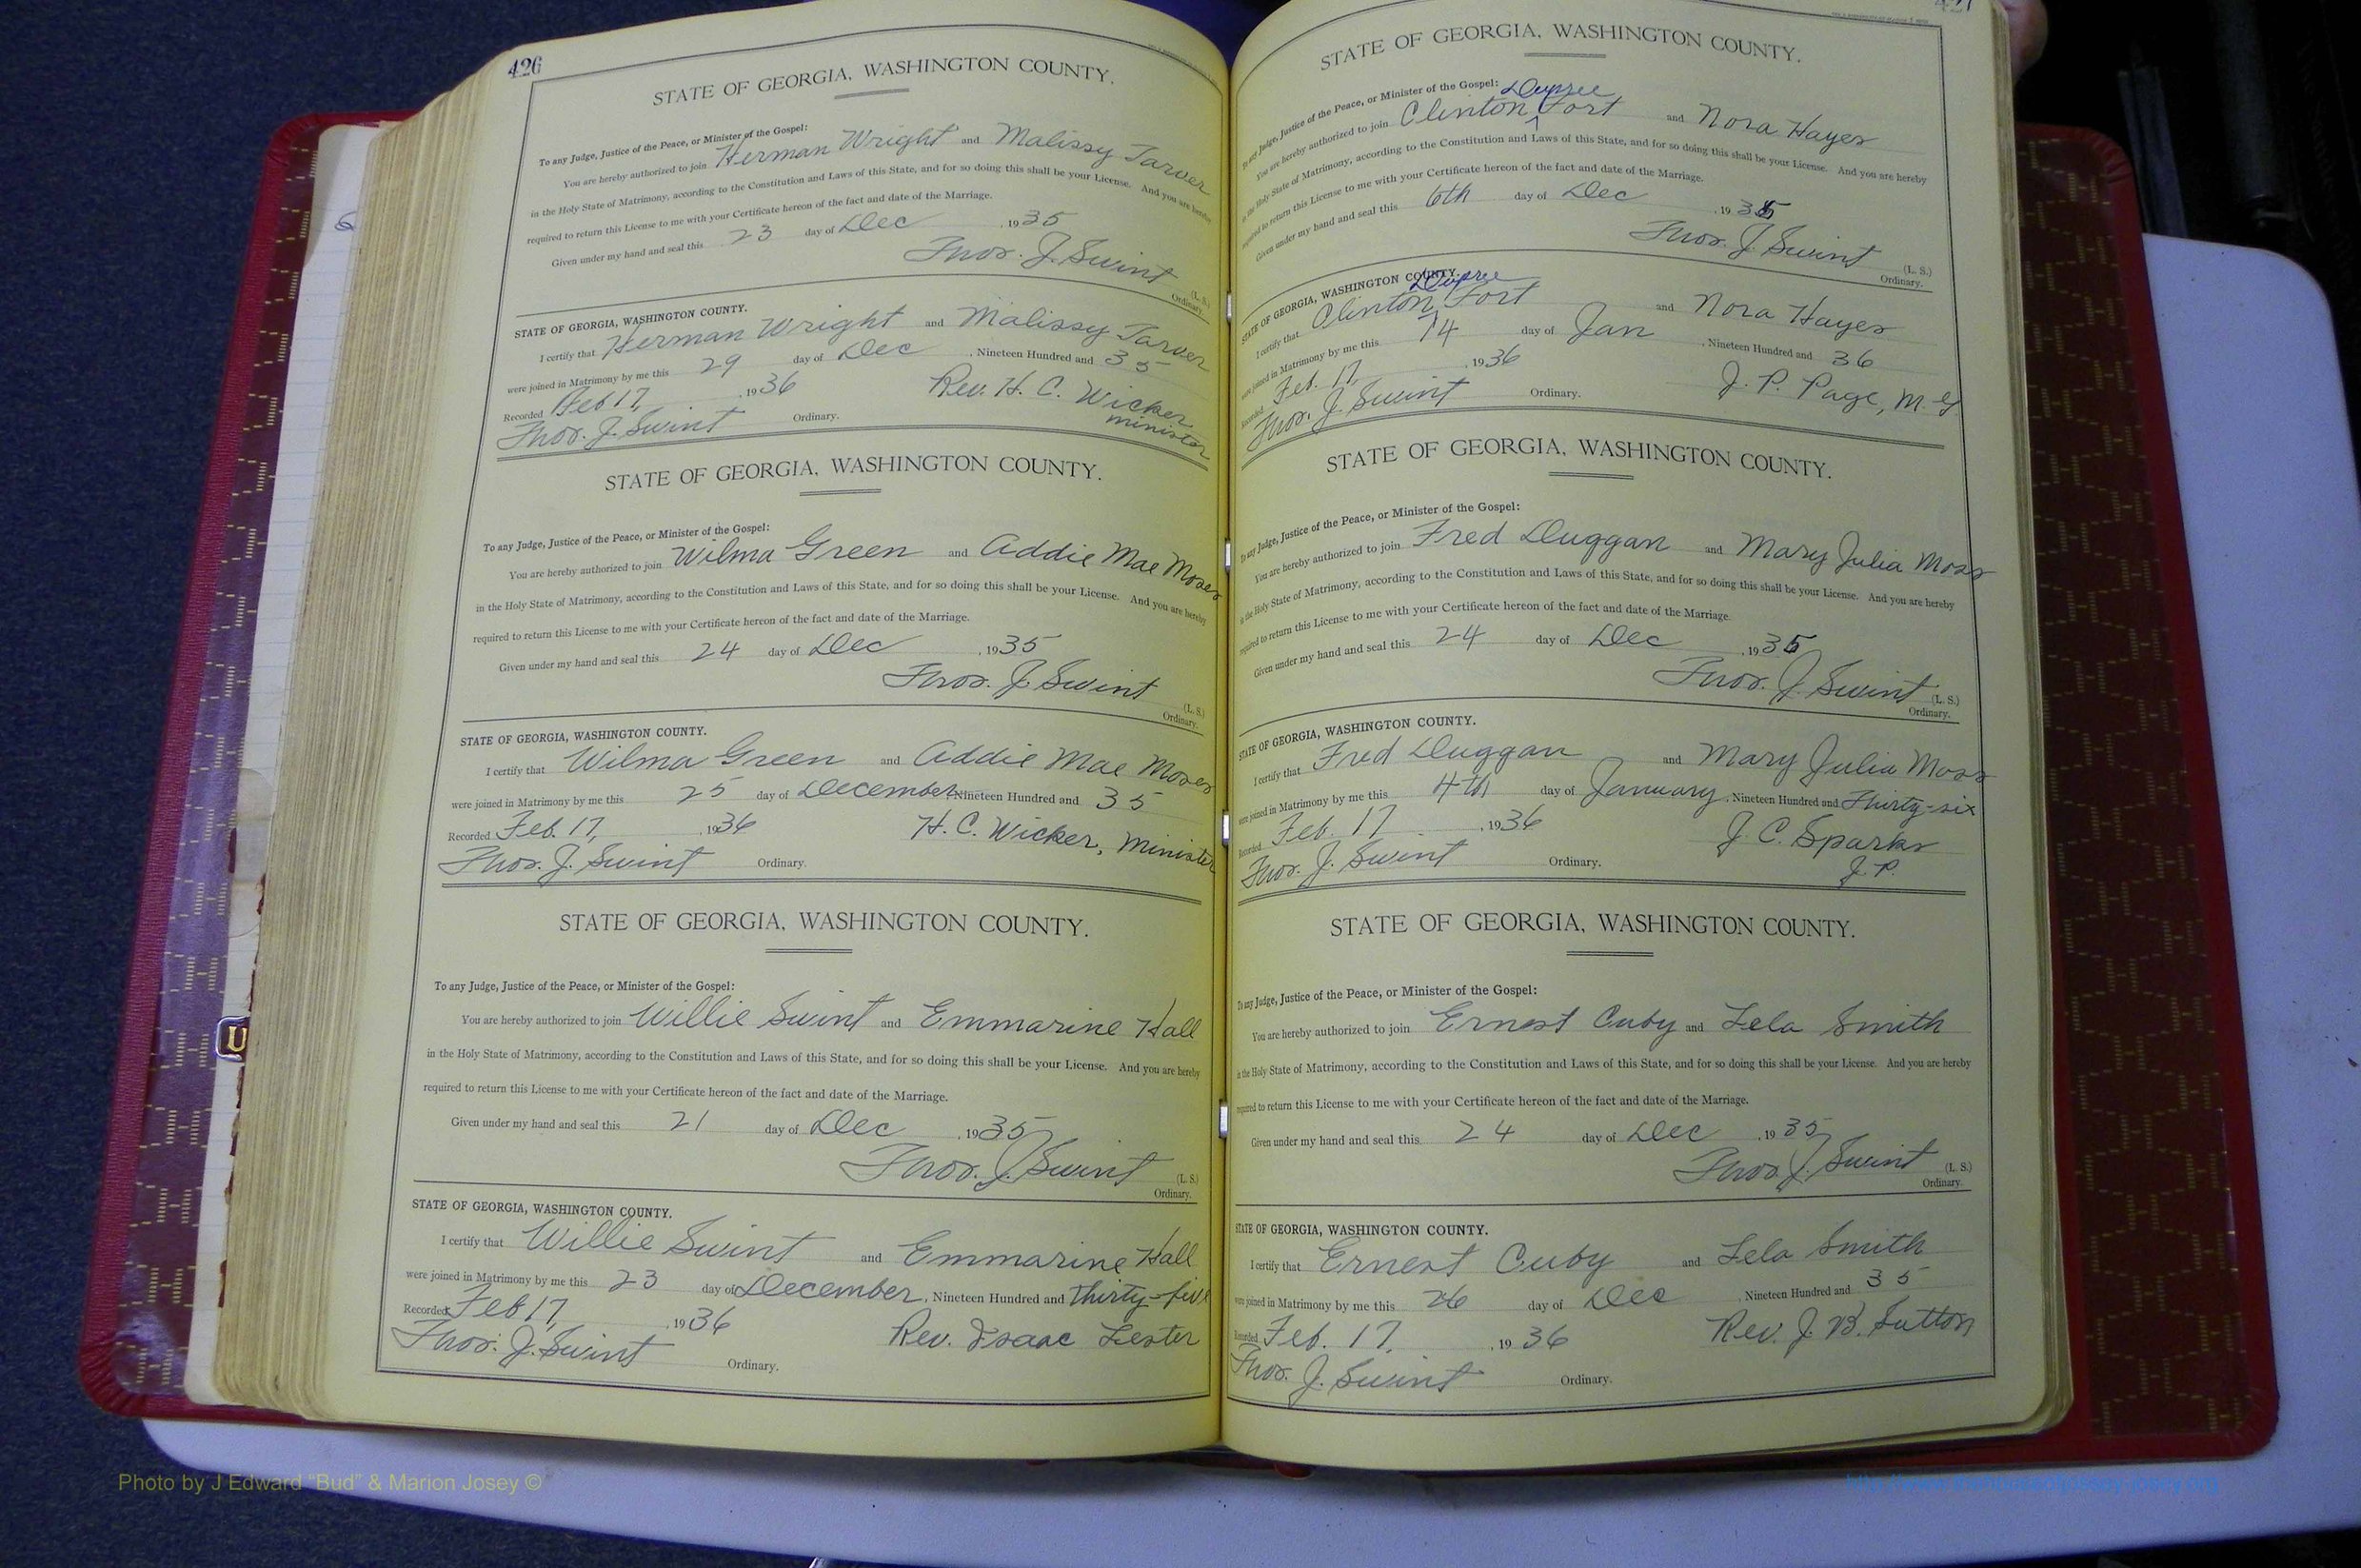 426
STATE OF GEORGIA, WASHINGTON COUNTY.
To any Judge, Justice of the Peace, or Minister of the Gospel:
You are hereby authorized to join Herman Wright and Malissy Tarver
in the Holy State of Matrimony, according to the Constitution and Laws of this State, and for so doing this shall be your License. And you are hereby
required to return this License to me with your Certificate hereon of the fact and date of the Marriage.
Given under my hand and seal this 23 day of Dec, 1935
Thos. J. Swint (L. S.)
Ordinary.
STATE OF GEORGIA, WASHINGTON COUNTY.
I certify that Herman Wright and Malissy Tarver
were joined in Matrimony by me this 29 day of Dec, Nineteen Hundred and 35
Recorded Feb 17, 1936 Rev. H. C. Wicker
minister
Thos. J. Swint Ordinary.
STATE OF GEORGIA, WASHINGTON COUNTY.
To any Judge, Justice of the Peace, or Minister of the Gospel:
You are hereby authorized to join Wilma Green and Addie Mae Moses
in the Holy State of Matrimony, according to the Constitution and Laws of this State, and for so doing this shall be your License. And you are hereby
required to return this License to me with your Certificate hereon of the fact and date of the Marriage.
Given under my hand and seal this 24 day of Dec, 1935
Thos. J. Swint (L. S.)
Ordinary.
STATE OF GEORGIA, WASHINGTON COUNTY.
I certify that Wilma Green and Addie Mae Moses
were joined in Matrimony by me this 25 day of December, Nineteen Hundred and 35
Recorded Feb. 17, 1936 H. C. Wicker, Minister
Thos. J. Swint Ordinary.
STATE OF GEORGIA, WASHINGTON COUNTY.
To any Judge, Justice of the Peace, or Minister of the Gospel:
You are hereby authorized to join Willie Swint and Emmarine Hall
in the Holy State of Matrimony, according to the Constitution and Laws of this State, and for so doing this shall be your License. And you are hereby
required to return this License to me with your Certificate hereon of the fact and date of the Marriage.
Given under my hand and seal this 21 day of Dec, 1935
Thos. J. Swint (L. S.)
Ordinary.
STATE OF GEORGIA, WASHINGTON COUNTY.
I certify that Willie Swint and Emmarine Hall
were joined in Matrimony by me this 23 day of December, Nineteen Hundred and Thirty-five
Recorded Feb 17, 1936 Rev. Isaac Lester
Thos. J. Swint Ordinary.
STATE OF GEORGIA, WASHINGTON COUNTY.
To any Judge, Justice of the Peace, or Minister of the Gospel:
Dupree
You are hereby authorized to join Clinton Fort and Nora Hayes
in the Holy State of Matrimony, according to the Constitution and Laws of this State, and for so doing this shall be your License. And you are hereby
required to return this License to me with your Certificate hereon of the fact and date of the Marriage.
Given under my hand and seal this 6th day of Dec, 1935
Thos. J. Swint (L. S.)
Ordinary.
STATE OF GEORGIA, WASHINGTON COUNTY.
Dupree
I certify that Clinton Fort and Nora Hayes
were joined in Matrimony by me this 14 day of Jan, Nineteen Hundred and 36
Recorded Feb. 17, 1936 J. P. Page, M. G
Thos. J. Swint Ordinary.
STATE OF GEORGIA, WASHINGTON COUNTY.
To any Judge, Justice of the Peace, or Minister of the Gospel:
You are hereby authorized to join Fred Duggan and Mary Julia Moss
in the Holy State of Matrimony, according to the Constitution and Laws of this State, and for so doing this shall be your License. And you are hereby
required to return this License to me with your Certificate hereon of the fact and date of the Marriage.
Given under my hand and seal this 24 day of Dec, 1935
Thos. J. Swint (L. S.)
Ordinary.
STATE OF GEORGIA, WASHINGTON COUNTY.
I certify that Fred Duggan and Mary Julia Moss
were joined in Matrimony by me this 4th day of January, Nineteen Hundred and Thirty-six
Recorded Feb. 17, 1936 J. C. Sparks
J. P.
Thos. J. Swint Ordinary.
STATE OF GEORGIA, WASHINGTON COUNTY.
To any Judge, Justice of the Peace, or Minister of the Gospel:
You are hereby authorized to join Ernest Cuby and Lela Smith
in the Holy State of Matrimony, according to the Constitution and Laws of this State, and for so doing this shall be your License. And you are hereby
required to return this License to me with your Certificate hereon of the fact and date of the Marriage.
Given under my hand and seal this 24 day of Dec, 1935
Thos. J. Swint (L. S.)
Ordinary.
STATE OF GEORGIA, WASHINGTON COUNTY.
I certify that Ernest Cuby and Lela Smith
were joined in Matrimony by me this 26 day of Dec, Nineteen Hundred and 35
Recorded Feb. 17, 1936 Rev. J. B. Sutton
Thos. J. Swint Ordinary.
U
Photo by J Edward “Bud” & Marion Josey ©